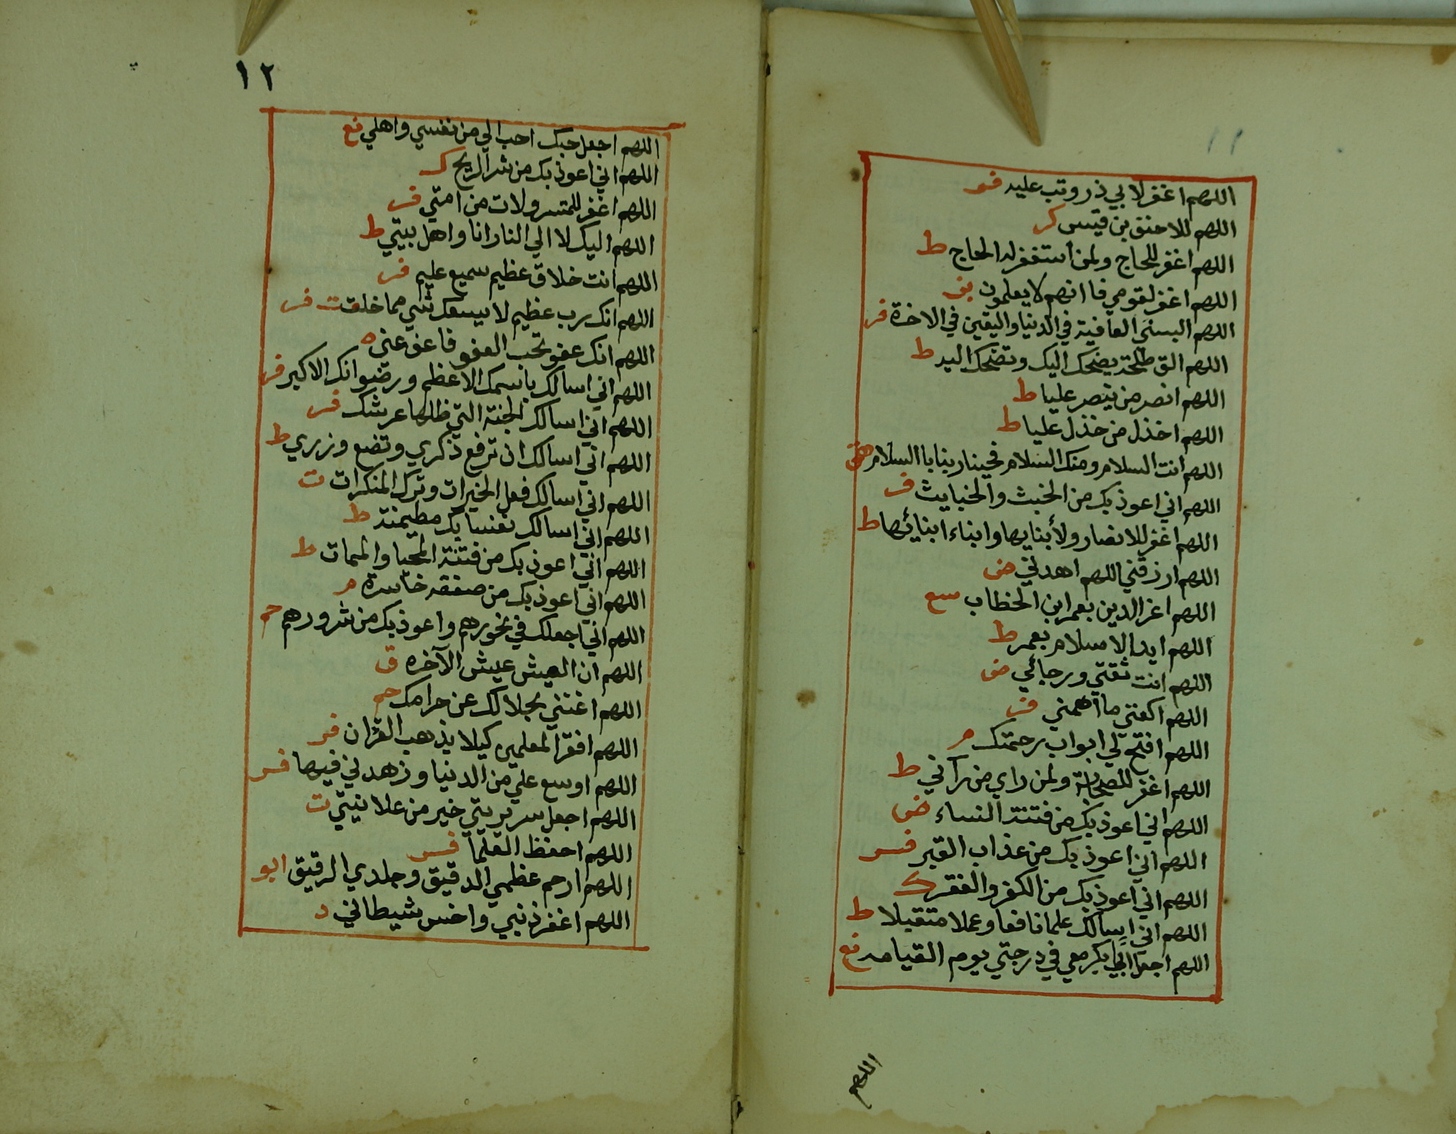 ١١
اللهم اغفر لابي ذر وتب عليه فر
اللهم للاحنف بن قيس كر
اللهم اغفر للحاج ولمن أستغفر له الحاج ط
اللهم اغفر لقومي فاانهم لا يعلمون
اللهم البسني العافية في الدنيا واليقين في الاخرة فر
اللهم الق طلحة يضحك اليك وتضحك اليه ط
اللهم انصر من ينصر عليا ط
اللهم اخذل من خذل عليا ط
اللهم انت السلام ومنك السلام فحينا ربنا باالسلام
اللهم اني اعوذ بك من الخبث والخبايث فر
اللهم اغفر للانصار ولأبنايها وابناء ابنائها ط
اللهم ارزقني اللهم اهدني ض
اللهم اعز الدين بعمر ابن الخطاب سع
اللهم ايد الاسلام بعمر ط
اللهم انت ثقتي ورجائي ض
اللهم اكفني ما اهمني فر
اللهم افتح لي ابواب رحمتك م
اللهم اغفر للصحابة ولمن راي من رآني ط
اللهم اني اعوذ بك من فتنة النساء ض
اللهم اني اعوذ بك من عذاب القبر فر
اللهم اني اعوذ بك من الكفر والفقر ك
اللهم اني اسالك علما نافعا وعملا متقبلا ط
اللهم اجعل ابي بكر معي في درجتي يوم القيامه نع
اللهم
١٢
اللهم اجعل حبك احب الي من نفسي واهلي نع
اللهم اني اعوذ بك من شر الريح ك
اللهم اغفر للمتسرولات من امتي فر
اللهم اليك لا الي النار انا واهل بيتي ط
اللهم انت خلاق عظيم سميع عليم فر
اللهم انك رب عظيم لا يسعك شي مما خلقت فر
اللهم انك عفو تحب العفو فاعف عني ه
اللهم اني اسالك باسمك الاعظم ورضوانك الاكبر فر
اللهم اني اسالك الجنة التي ظلها عرشك فر
اللهم اني اسالك ان ترفع ذكري وتضع وزري ط
اللهم اني اسالك فعل الخيرات وترك المنكرات ت
اللهم اني اسالك نفسا بك مطيمنة ط
اللهم اني اعوذ بك من فتنة المحيا والممات ط
اللهم اني اعوذ بك من صفقه خاسرة م
اللهم اني اجعلك في نحورهم واعوذ بك من شرورهم حم
اللهم ان العيش عيش الآخره ق
اللهم اغنني بحلالك عن حرامك حم
اللهم افقر المعلمين كيلا يذهب القرآن فر
اللهم اوسع علي من الدنيا وزهدني فيها فر
اللهم اجعل سريرتي خير من علانيتي ت
اللهم احفظ العلما فر
اللهم ارحم عظمي الدقيق وجلدي الرقيق ابو
اللهم اغفر ذنبي واخس شيطاني د